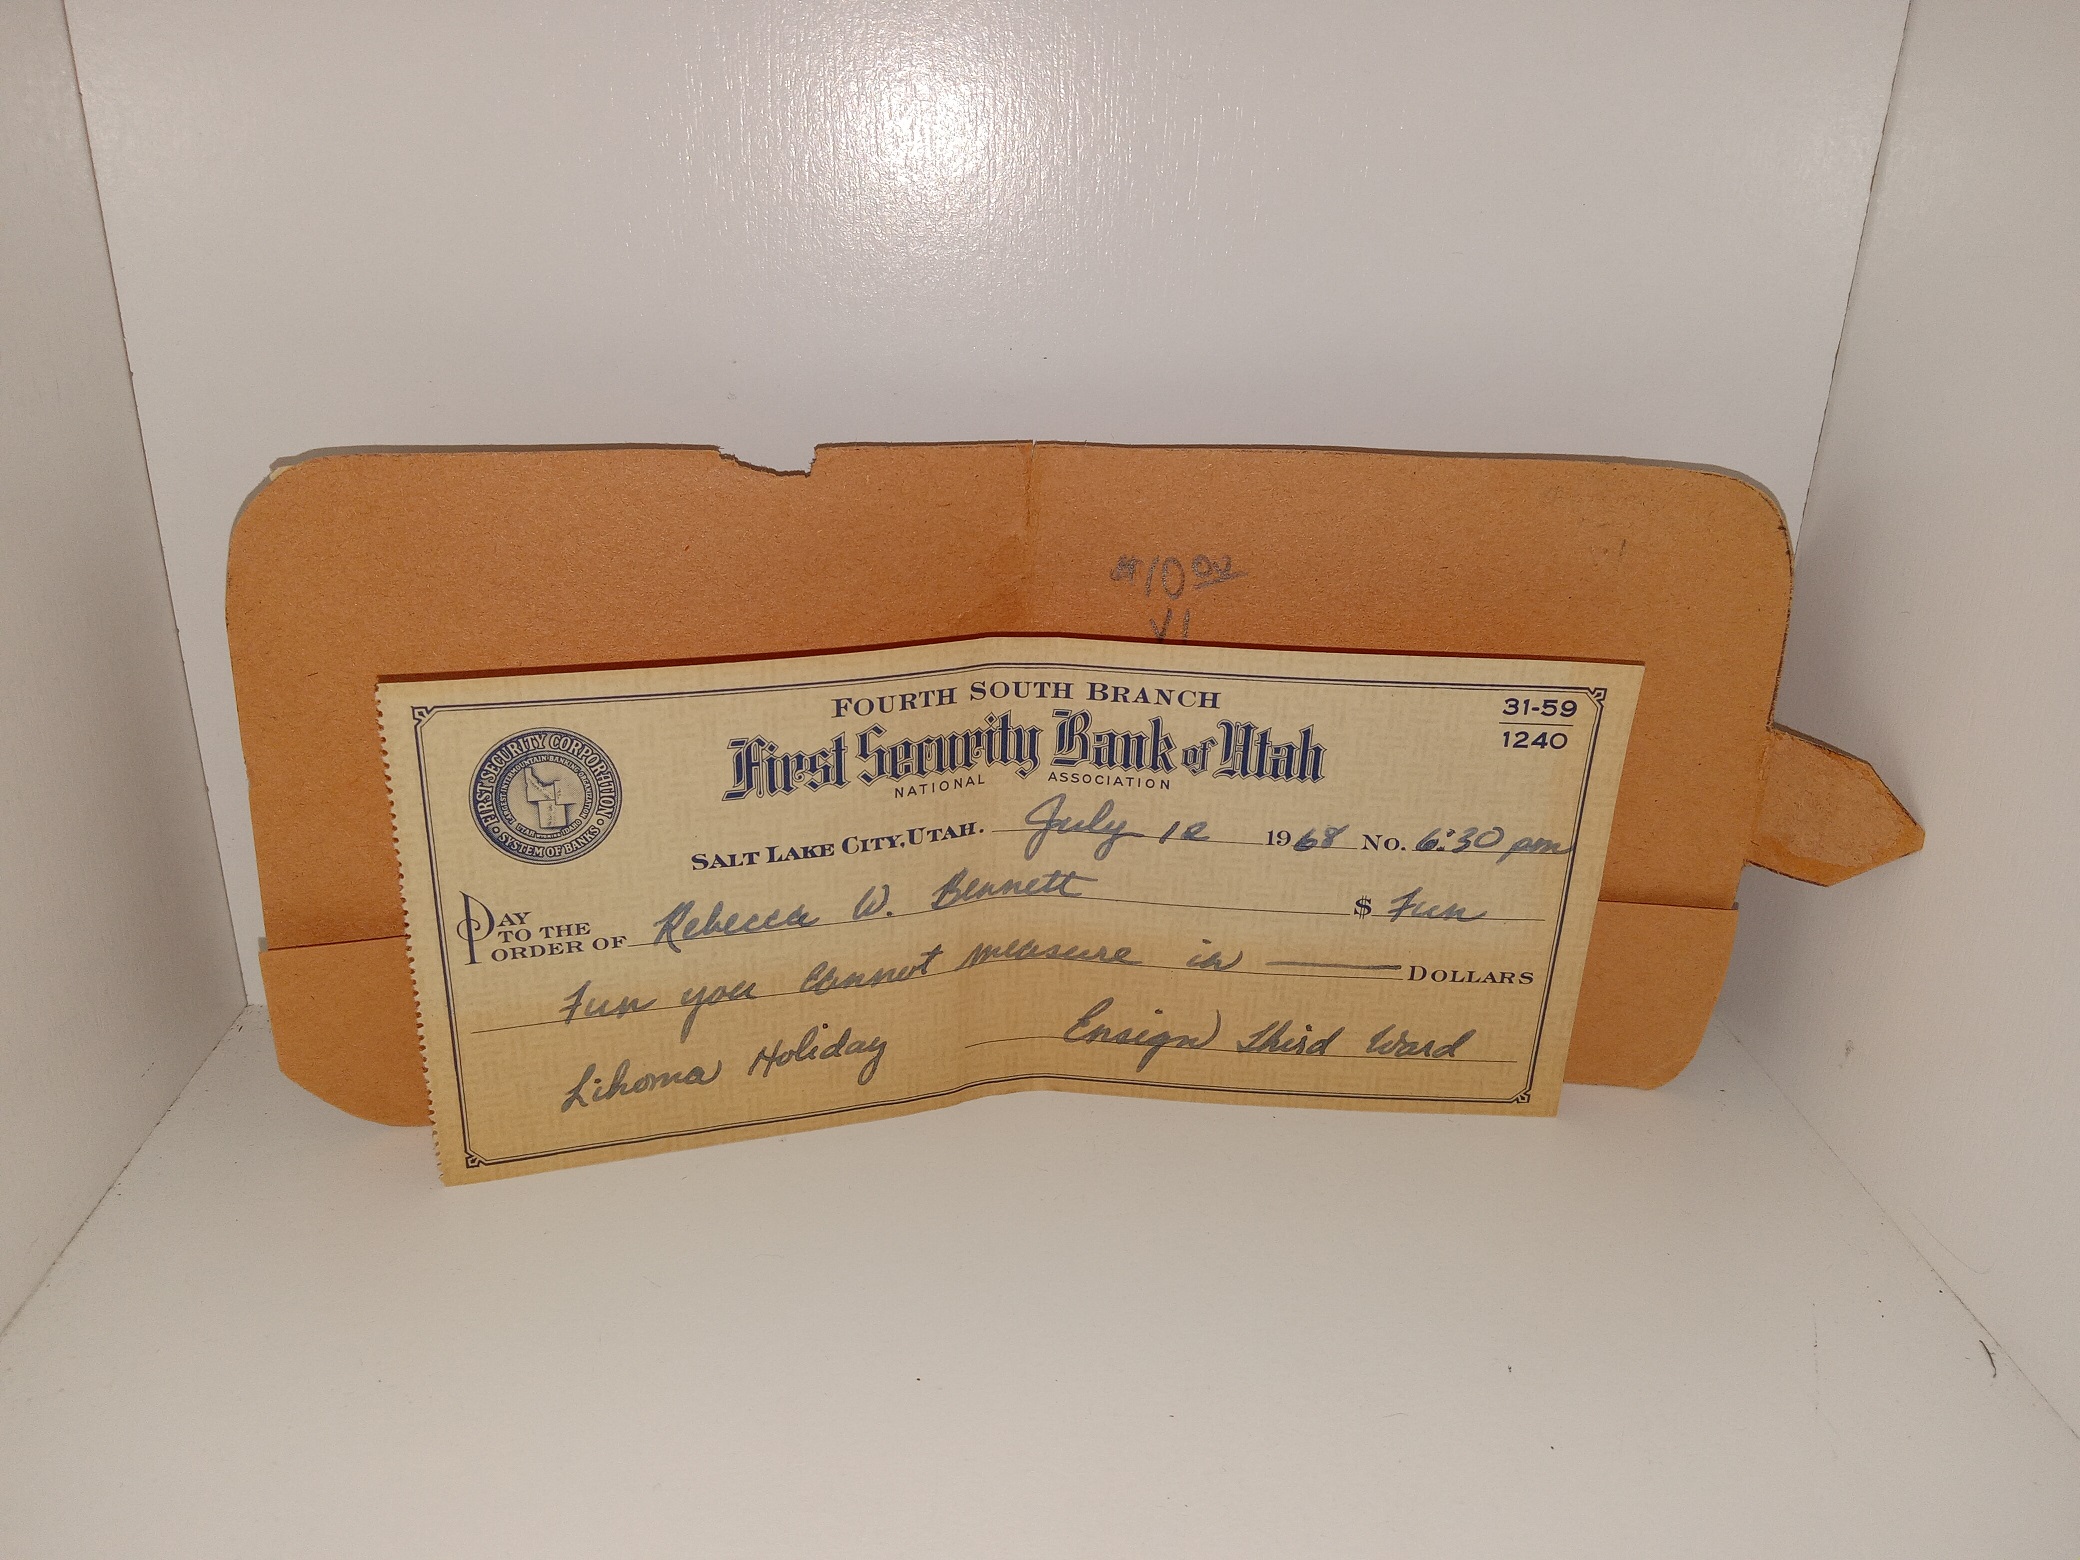 $10.02
V1
FOURTH SOUTH BRANCH
First Security Bank of Utah
NATIONAL ASSOCIATION
31-59
1240
FIRST SECURITY CORPORATION
SYSTEM OF BANKS
SALT LAKE CITY, UTAH. July 12 1968 No. 6:30 pm
PAY TO THE ORDER OF Rebecca W. Bennett $ Fun
Fun you cannot measure in DOLLARS
Lihoma Holiday Ensign Third Ward